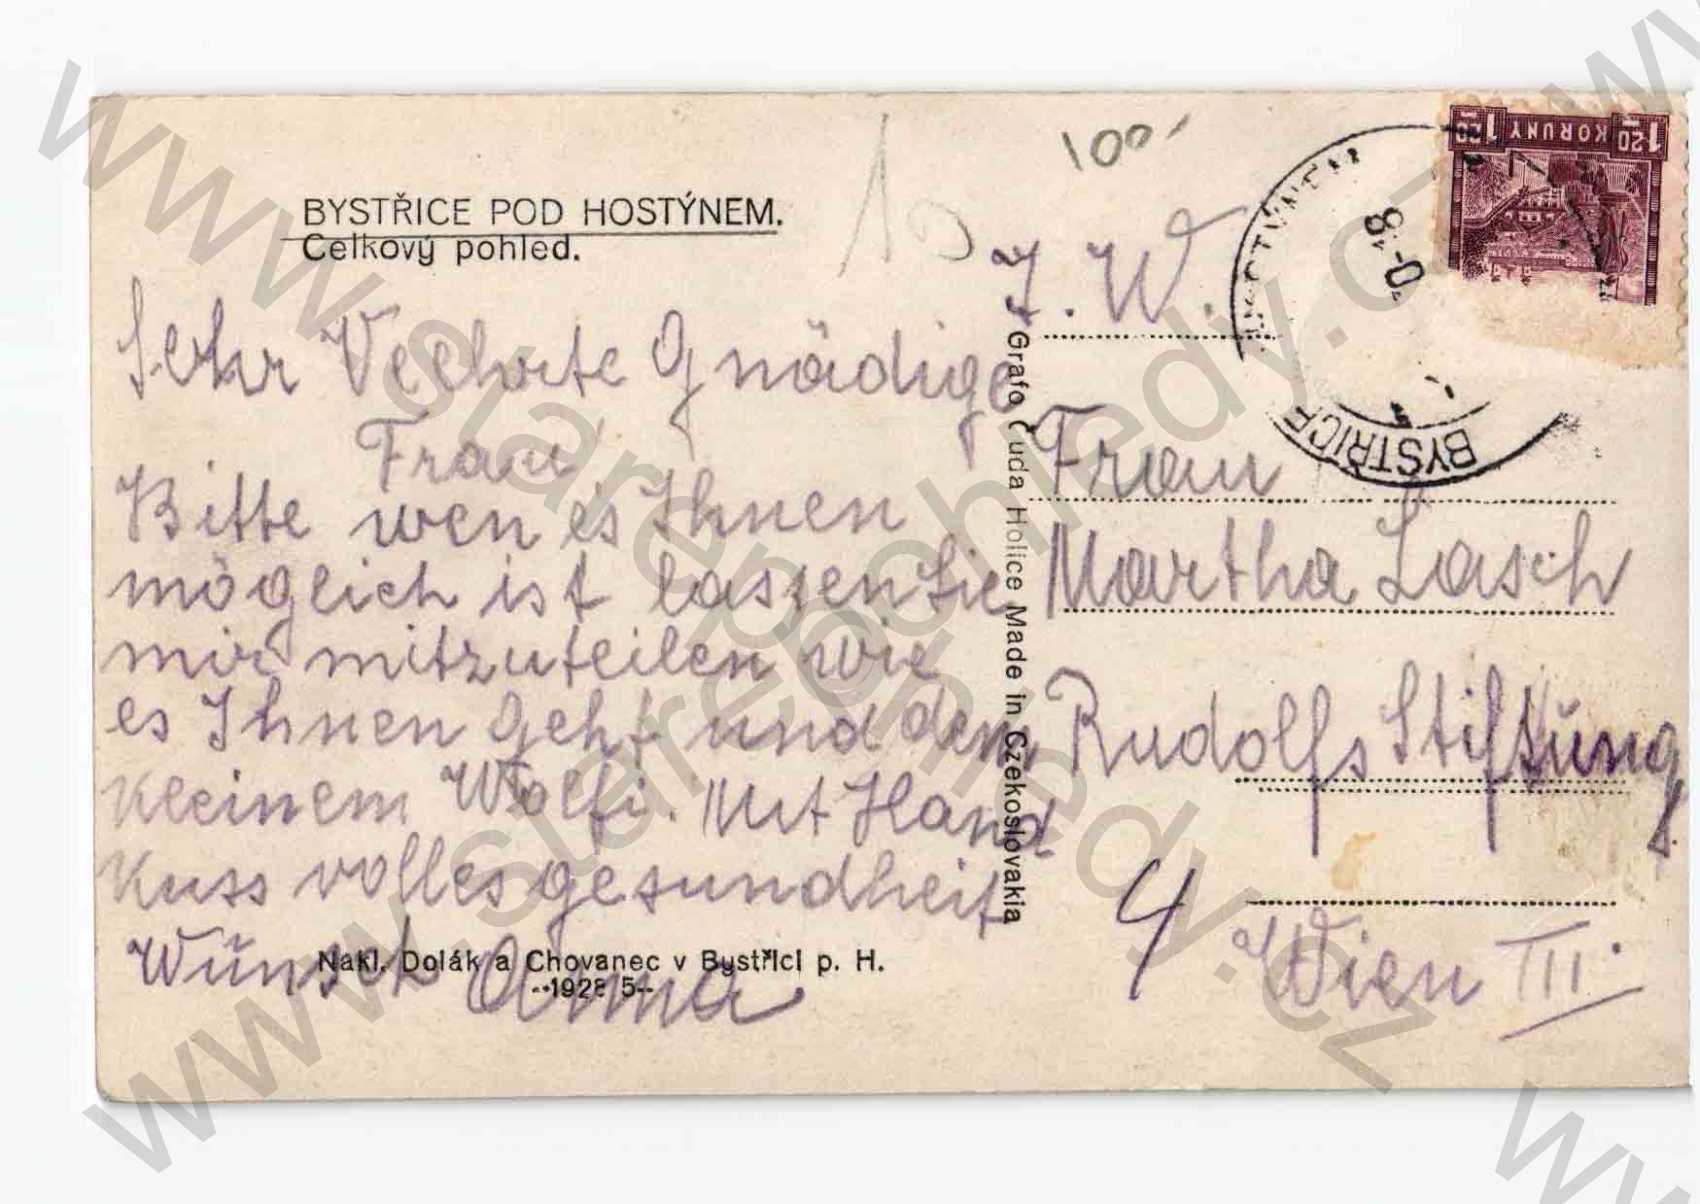 BYSTŘICE POD HOSTÝNEM.
Celkový pohled.
Sehr Veehrte Gnädige
Frau
Bitte wen es Ihnen
möglich ist lassen Sie
mir mitzuteilen wie
es Ihnen geht und dem
kleinem Wolfi. Mit Hand
Kuss volles gesundheit
Wünsch Anna
Nakl. Dolák a Chovanec v Bystřici p. H.
Grafo Čuda Holice Made in Czekoslovakia
100
I. W.
Frau
Martha Lasch
Rudolfs Stiftung
4
Wien III.
1·20 KORUNY 1·20
HOSTÝNEM
BYSTŘICE
www.starepohledy.cz
www.starepohledy.cz